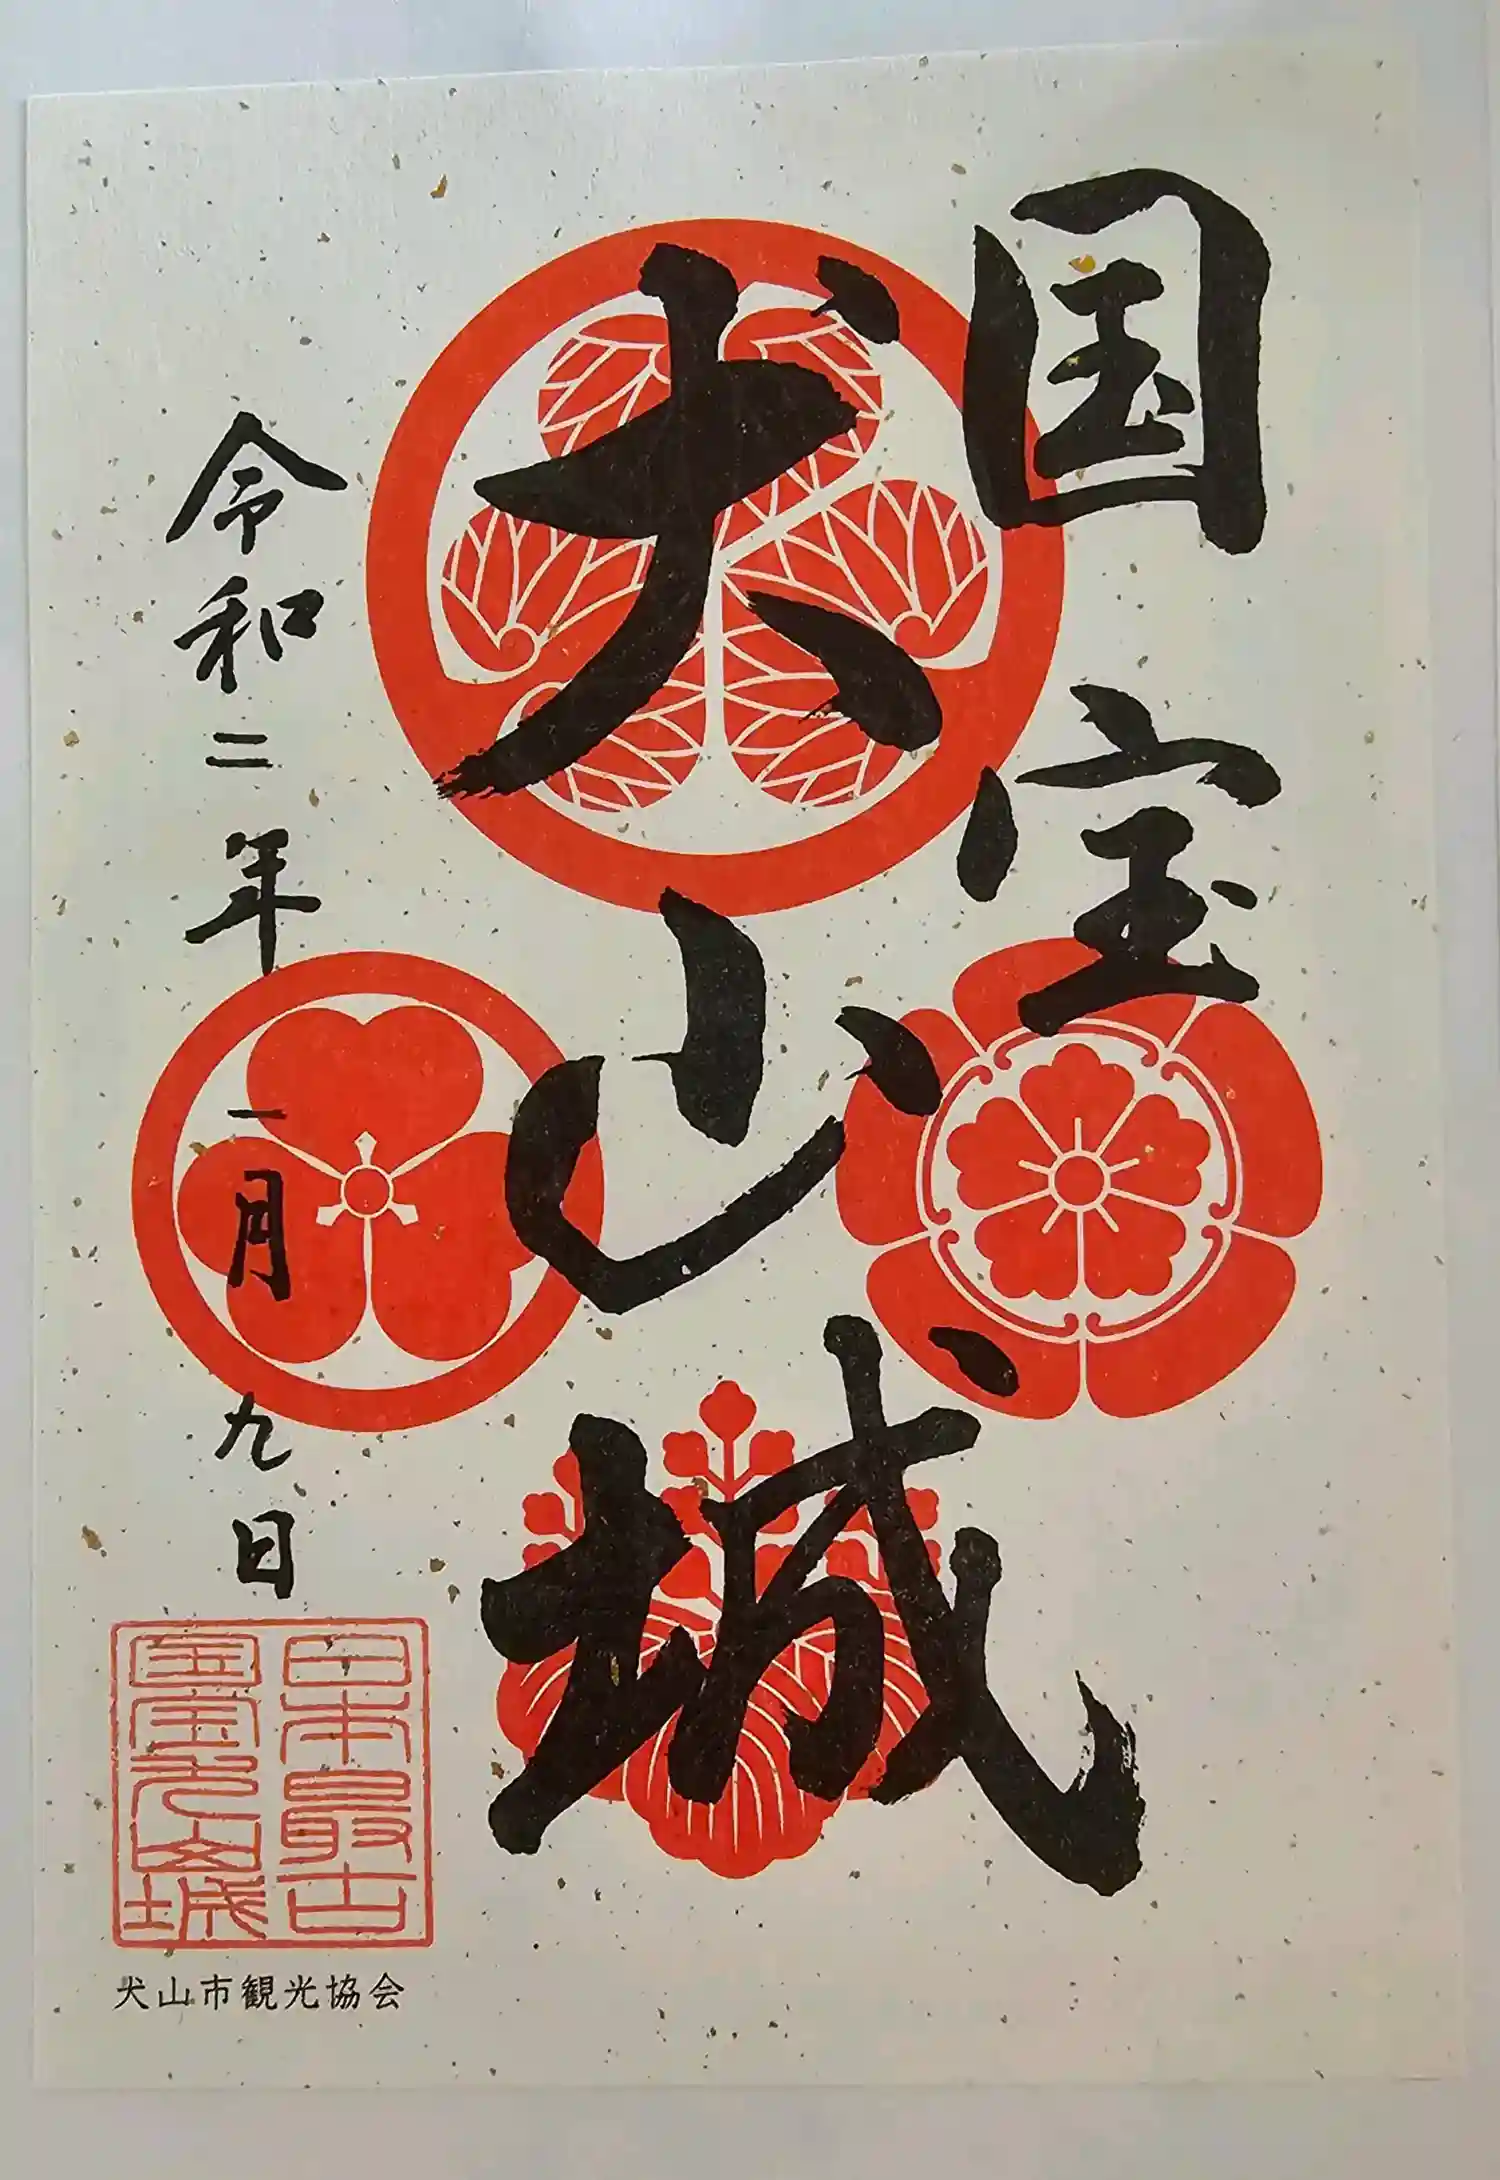 国宝
犬山城
令和二年一月九日
日本最古
国宝犬山城
犬山市観光協会